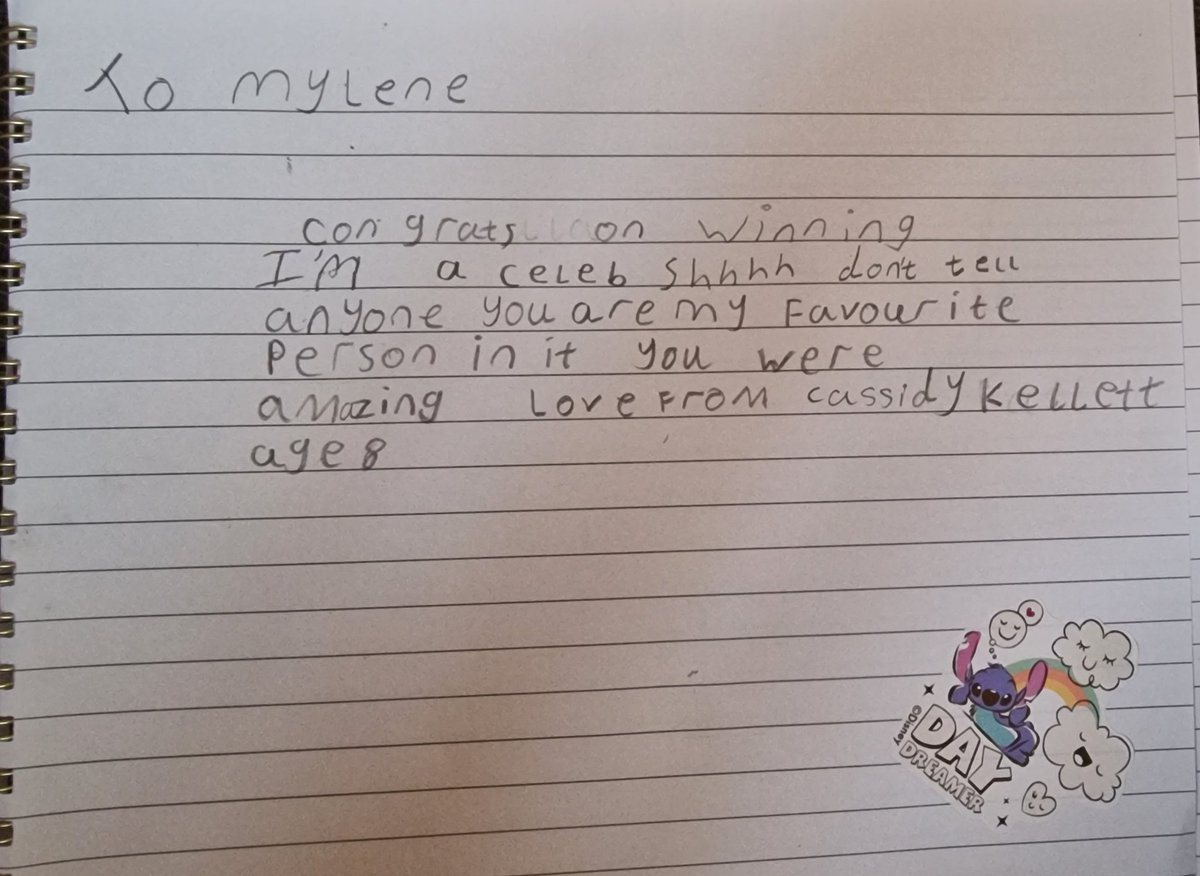 To mylene
congrats on winning
I'M a celeb shhhh don't tell
anyone you are my Favourite
Person in it you were
amazing Love From cassidy Kellett
age 8
©Disney
DAY
DREAMER